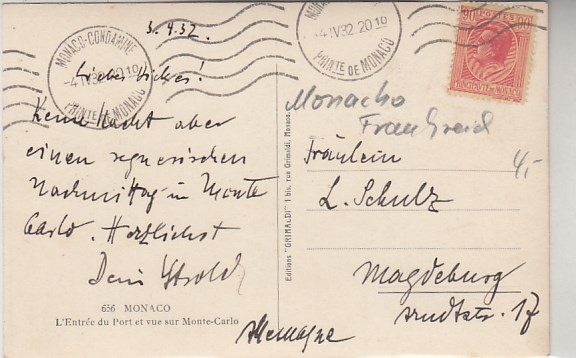 3.4.32.
MONACO-CONDAMINE
-4 IV 32 20 10
PRINTÉ DE MONACO
Liebes
Keine Nacht aber
einen regnerischen
Nachmittag in Monte
Carlo. Herzlichst
Dein
656 MONACO
L'Entrée du Port et vue sur Monte-Carlo
Allemagne
Editions "GRIMALDI" 1 bis, rue Grimaldi, Monaco.
-4 IV 32 20 10
PRINTÉ DE MONACO
90 POSTES 90
PRINCIPAUTÉ DE MONACO
Monacho
Frankreich
4,-
Fräulein
L. Schulz
Magdeburg
Arndtstr. 17